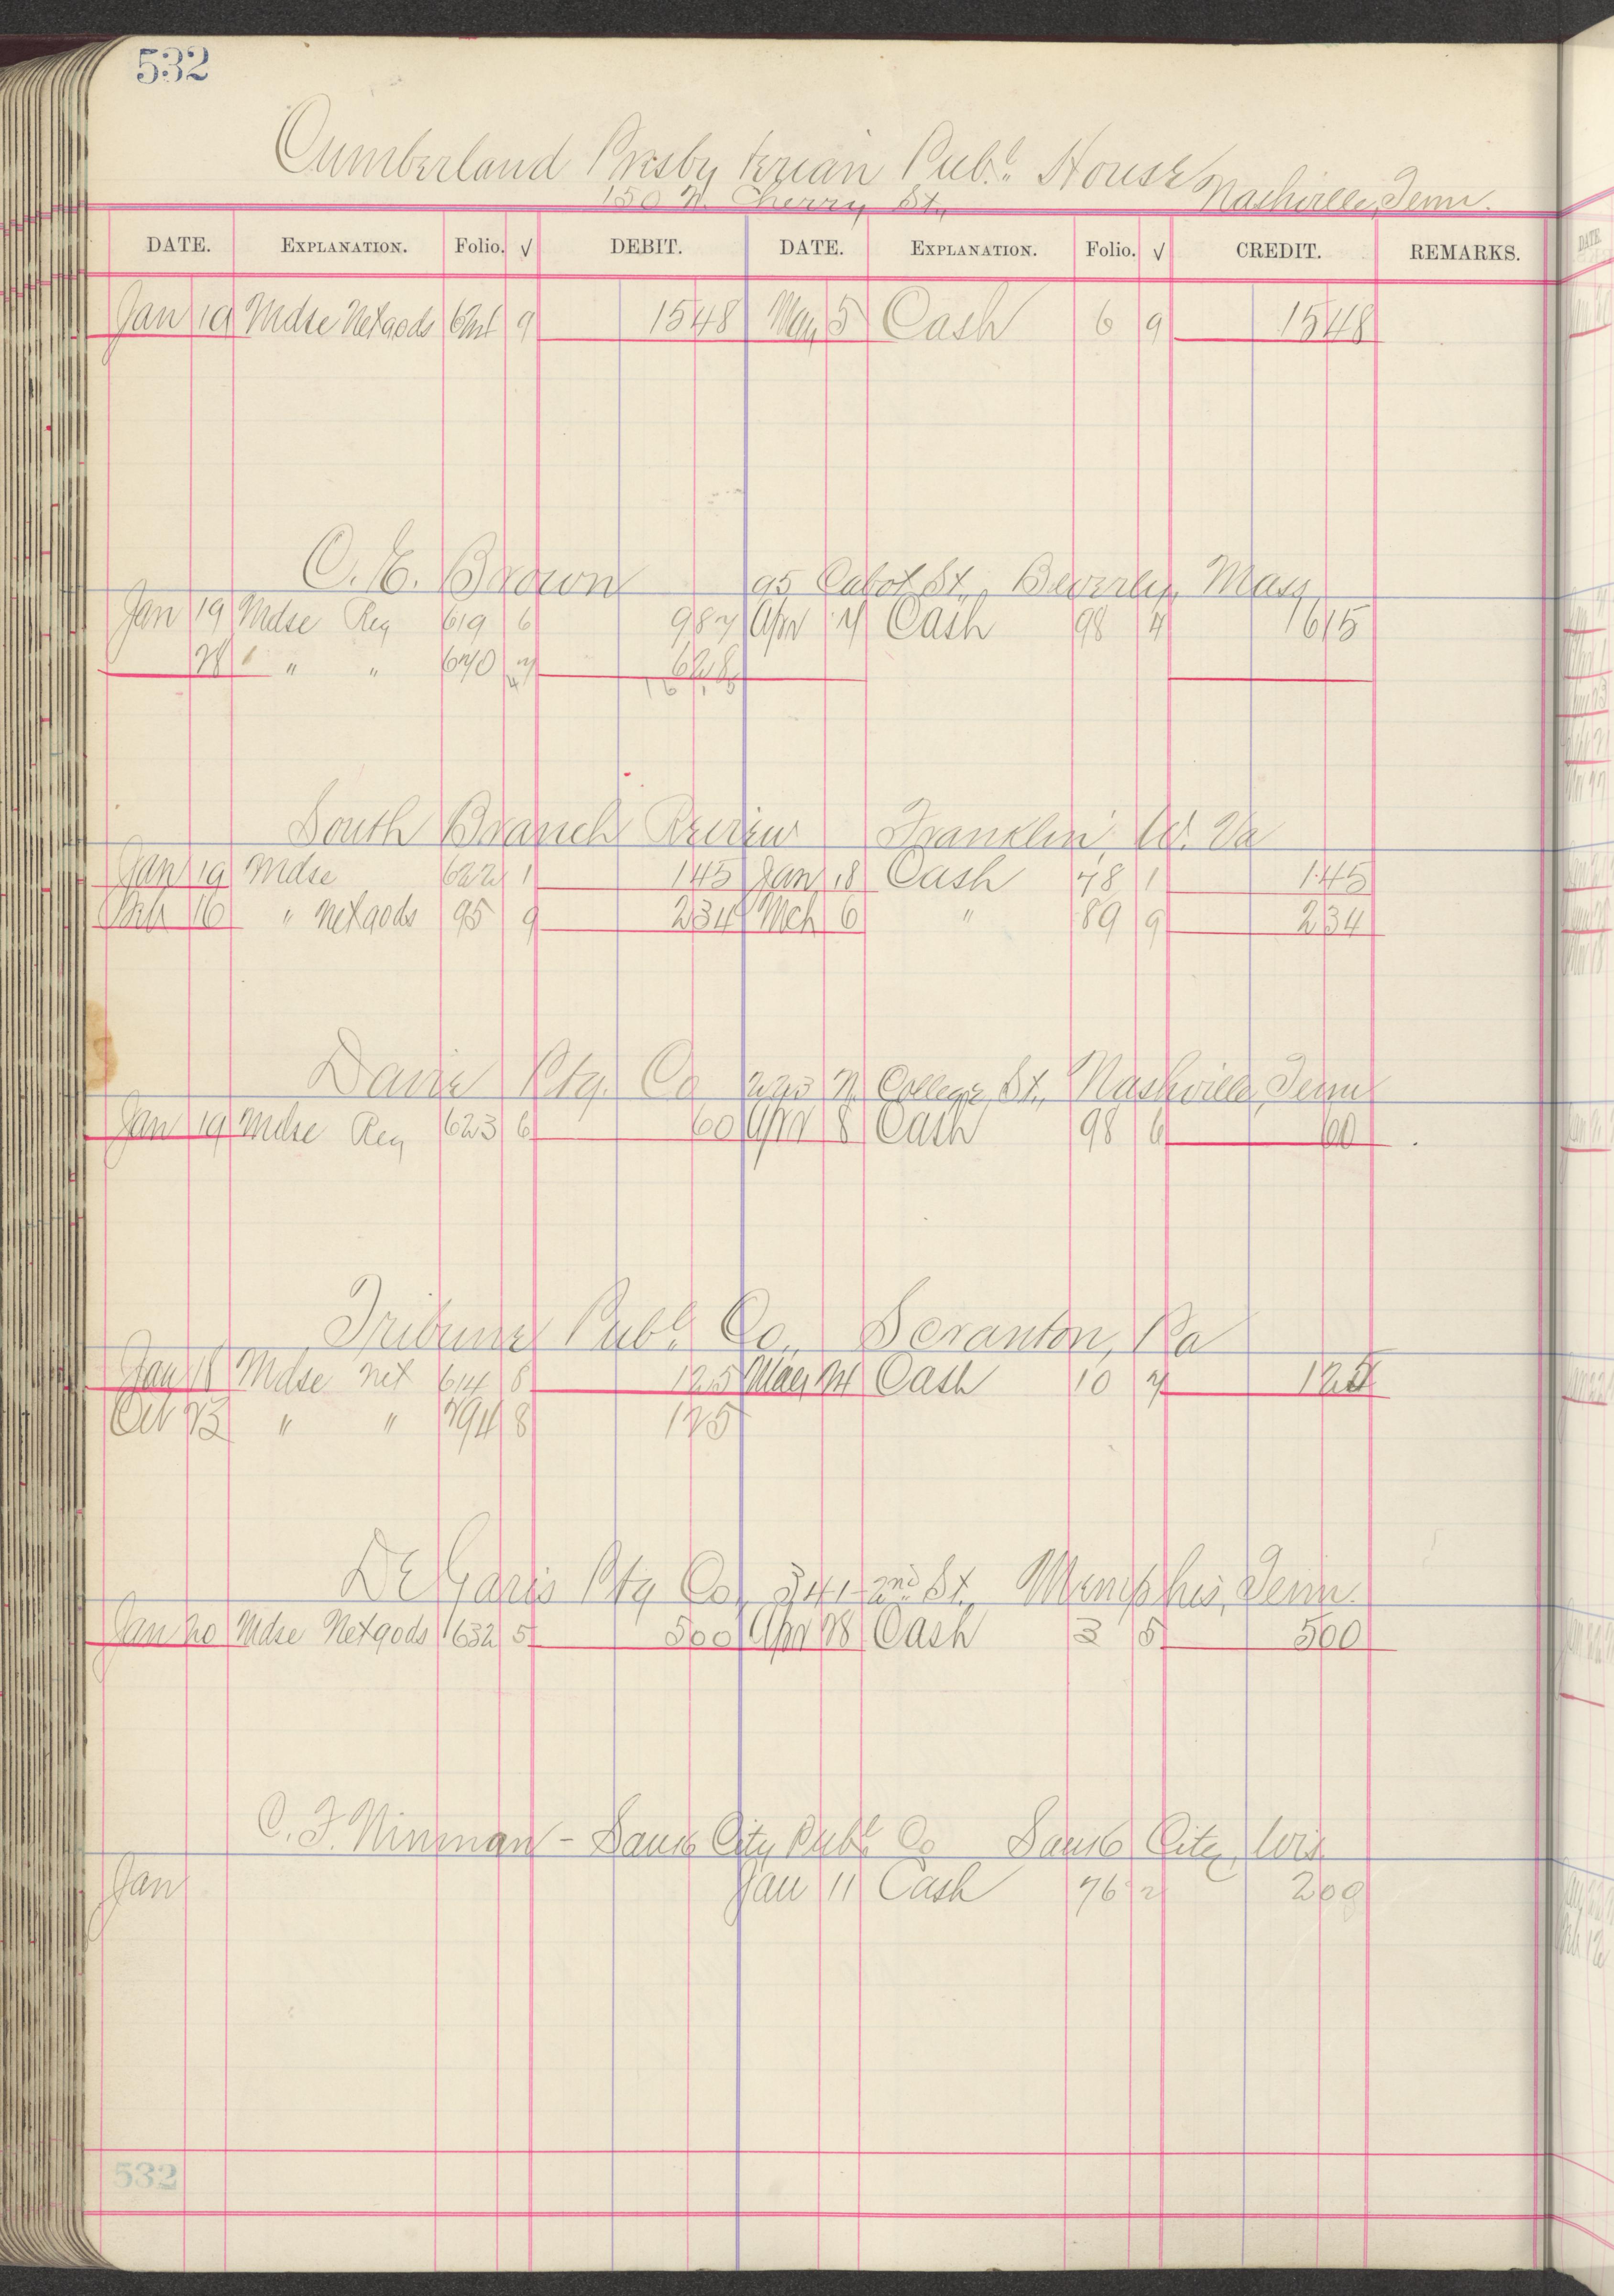 532
Cumberland Presbyterian Publ. House Nashville, Tenn.
150 N. Cherry St.,
DATE. EXPLANATION. Folio. √ DEBIT. DATE. EXPLANATION. Folio. √ CREDIT. REMARKS.
Jan 19 Mdse Netgods 9 1548 May 5 Cash 6 9 1548
C. E. Brown 95 Cabot St., Beverly, Mass
Jan 19 Mdse Reg 619 6 987 Apr Cash 98 4 1615
" " 670 628
1615
South Branch Review Franklin, W. Va
Jan 19 Mdse 622 1 145 Jan 18 Cash 78 1 145
Feb 16 " Netgods 95 9 234 Mch 6 " 89 9 234
Davie Ptg. Co 223 N. College St., Nashville, Tenn
Jan 19 Mdse Reg 623 6 60 Apr 8 Cash 98 6 60
Tribune Publ. Co., Scranton, Pa
Jan 18 Mdse net 614 8 125 May 24 Cash 10 7 125
Oct 23 " " 794 8 125
DeGaris Ptg Co, 341-2nd St., Memphis, Tenn.
Jan 20 Mdse Netgods 632 5 500 Apr 28 Cash 3 5 500
C. F. Ninman - Sauk City Publ. Co Sauk City, Wis
Jan Jan 11 Cash 76 2 200
532